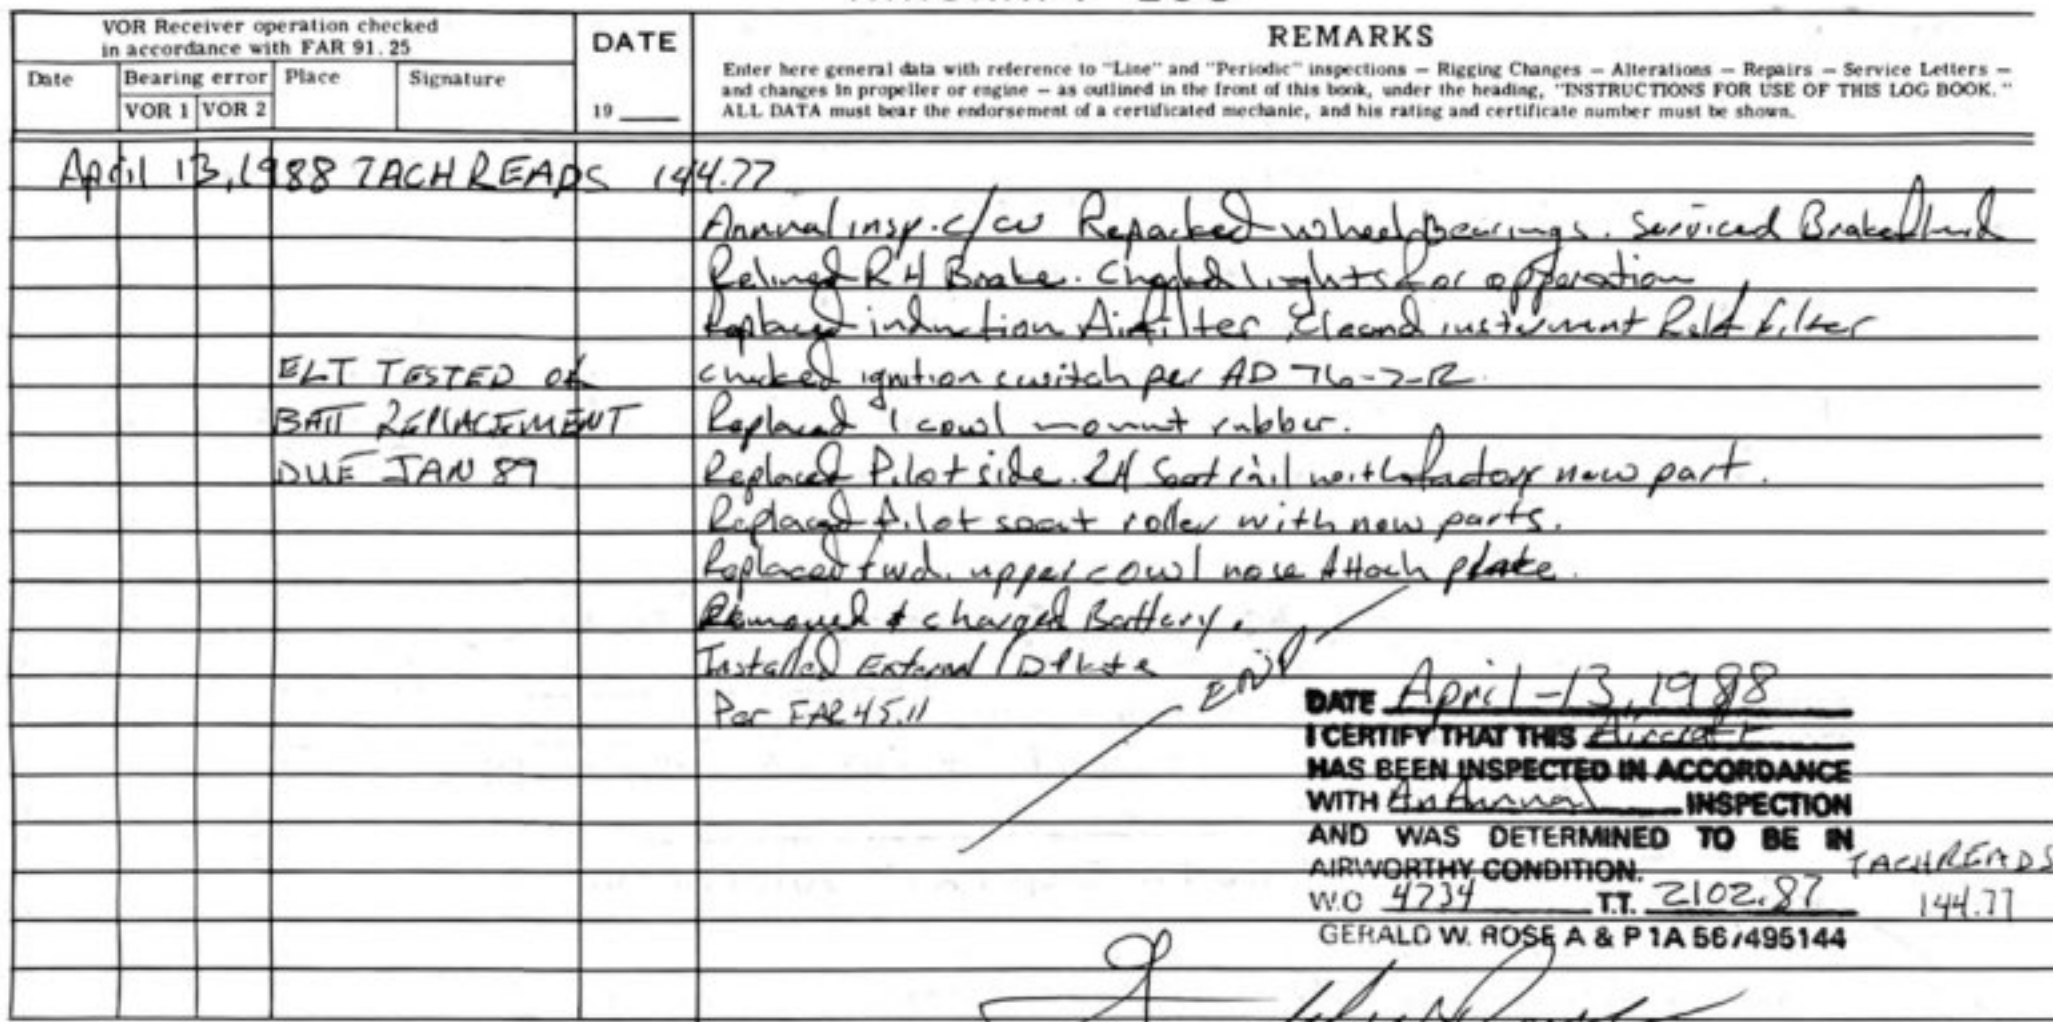 VOR Receiver operation checked
in accordance with FAR 91.25
DATE
REMARKS
Date
Bearing error
Place
Signature
VOR 1
VOR 2
19
Enter here general data with reference to "Line" and "Periodic" inspections — Rigging Changes — Alterations — Repairs — Service Letters —
and changes in propeller or engine — as outlined in the front of this book, under the heading, "INSTRUCTIONS FOR USE OF THIS LOG BOOK."
ALL DATA must bear the endorsement of a certificated mechanic, and his rating and certificate number must be shown.
April 13, 1988 TACH READS 144.77
Annual insp. c/w Repacked wheel Bearings. Serviced Brake fluid
Relined RH Brake. Checked lights for opperation
Replaced induction Airfilter, Cleand instrument filter
ELT TESTED OK
checked ignition switch per AD 76-7-12
BATT REPLACEMENT
Replaced 1 cowl mount rubber.
DUE JAN 89
Replaced Pilot side. Seat rail with factory new part.
Replaced Pilot seat roller with new parts.
Replaced fwd. upper cowl nose Attach plate.
Removed & charged Battery.
Installed External ID Plate
Per FAR 45.11
END
DATE April-13, 1988
I CERTIFY THAT THIS Aircraft
HAS BEEN INSPECTED IN ACCORDANCE
WITH An Annual INSPECTION
AND WAS DETERMINED TO BE IN
AIRWORTHY CONDITION.
TACH READS
W.O 4734 T.T. 2102.87
144.77
GERALD W. ROSE A & P IA 567495144